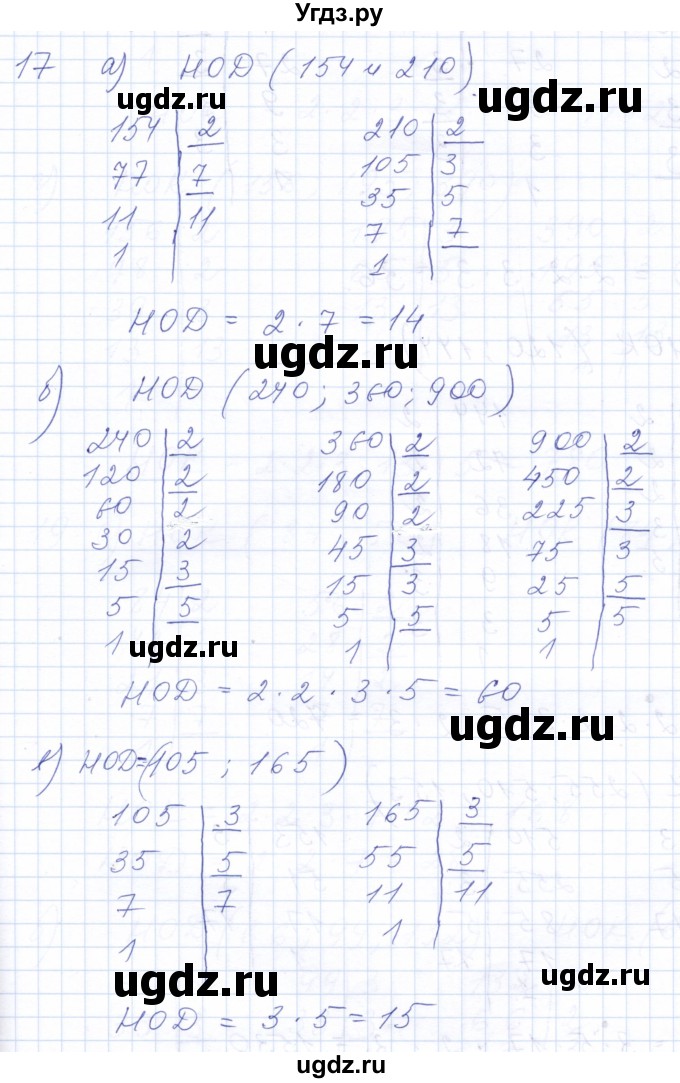 Угдз.ру
17 а) НОД (154 и 210)
ugdz.ru ugdz.ru
154 | 2 210 | 2
77 | 7 105 | 3
11 | 11 35 | 5
1 7 | 7
1
НОД = 2 · 7 = 14
ugdz.ru
б) НОД (240; 360; 900)
240 | 2 360 | 2 900 | 2
120 | 2 180 | 2 450 | 2
60 | 2 90 | 2 225 | 3
30 | 2 45 | 3 75 | 3
15 | 3 15 | 3 25 | 5
5 | 5 5 | 5 5 | 5
1 1 1
ugdz.ru
НОД = 2 · 2 · 3 · 5 = 60
ugdz.ru
в) НОД=(105 ; 165)
105 | 3 165 | 3
ugdz.ru
35 | 5 55 | 5
7 | 7 11 | 11
1 1
ugdz.ru ugdz.ru
НОД = 3 · 5 = 15
ugdz.ru